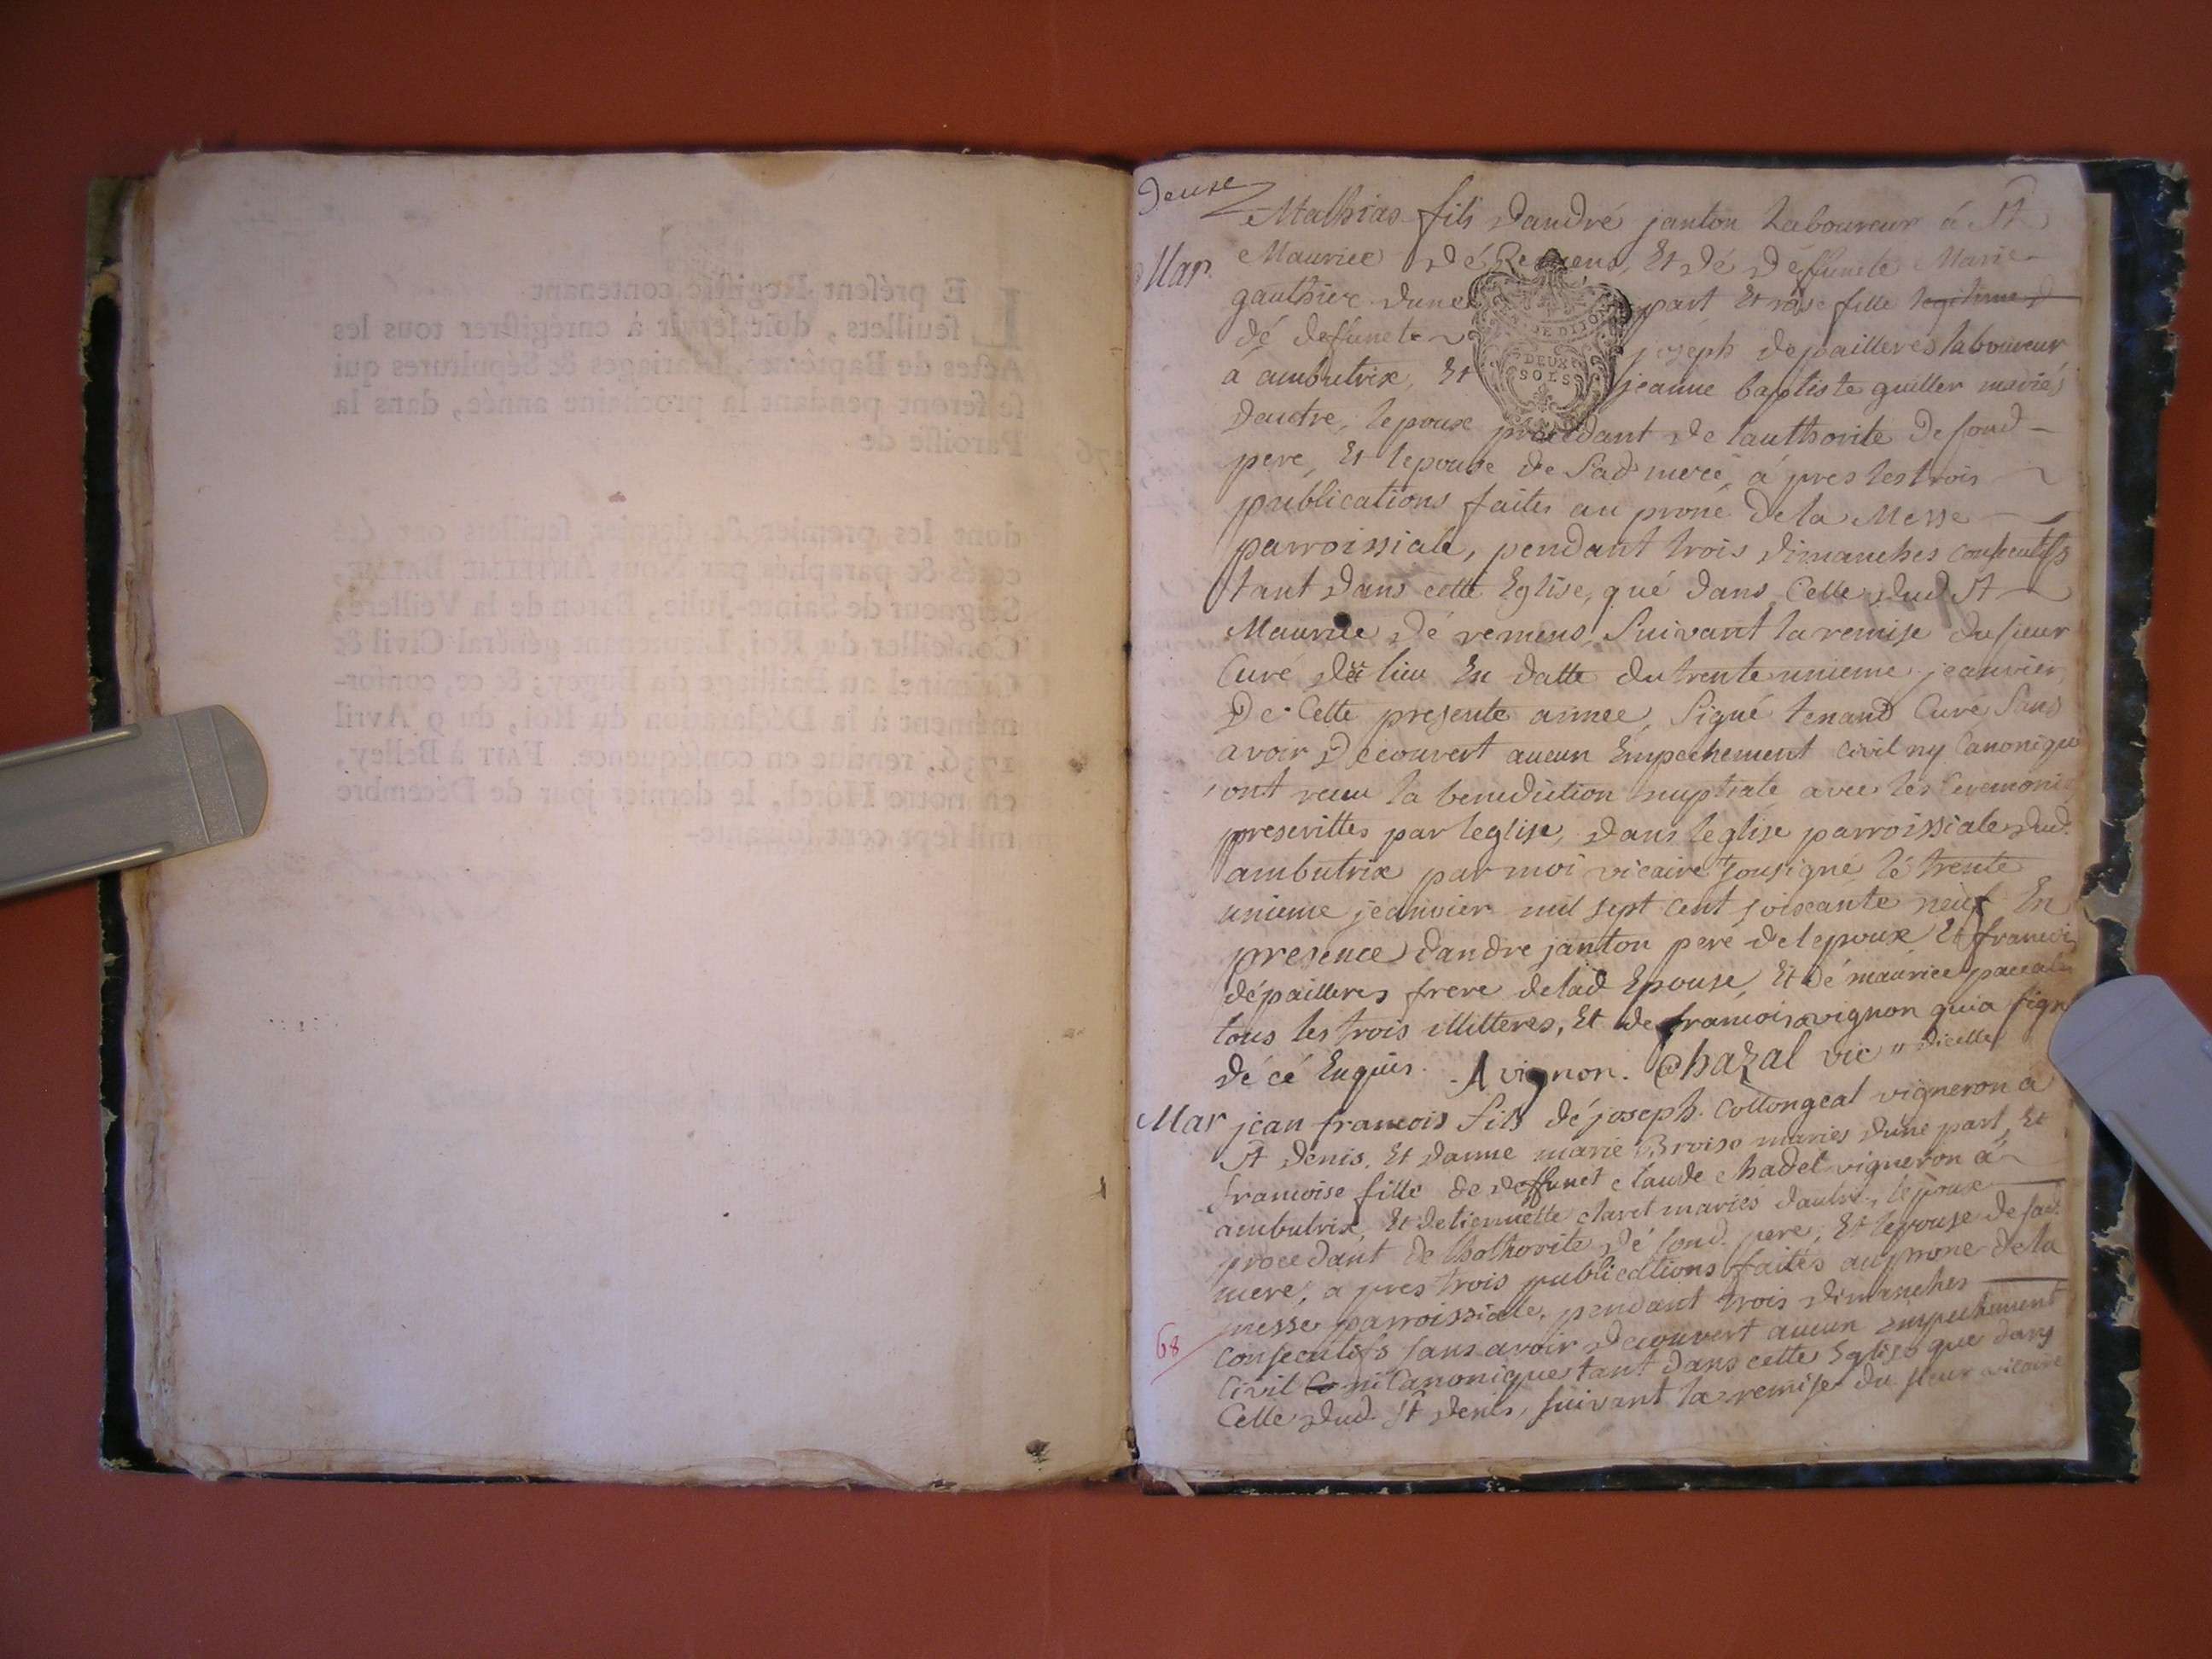 deuxe
Mathias fils dandré janton Laboureur à St
Mar Maurice dé Remens, Et dé deffuncte Marie
gauthier dune part Et rose fille legitime d
dé defunct joseph depailleres laboureur
à ambutrix, Et jeanne baptiste guiller mariés
dautre, lepoux procedant de lauthorite desond
pere, Et lepouse de Sad mere, à pres les trois
publications faites au prone dela Messe
parroissiale, pendant trois dimanches consecutifs
tant dans cette Eglise, qué dans Celle dud St
Maurice dé remens, Suivant la remise du sieur
Curé du lieu En datte du trente unieme jeanvier
De Cette presente année, Signé tenand Curé Sans
avoir Decouvert aucun Empechement civil ny Canonique
ont receu la benediction nuptiale avec les Ceremonies
prescrittes par leglise, dans leglise parroissiale dud.
ambutrix par moi vicaire sousigné lé trente
unieme jeanvier mil sept cent soixante neuf En
presence dandre janton peré delepoux Et francois
dépailleres frere delad Epouse, Et dé maurice paccalet
tous les trois illitteres, Et de francois avignon qui a signé
dé cé Enquis. Avignon. Chazal vic " dicelles
Mar jean francois fils dé joseph Collongeat vigneron à
St denis, Et danne marie Broise mariés dune part, Et
francoise fille de deffunct claude chadel vigneron à
ambutrix, Et detiennette claret mariés dautre, lepoux
procedant de lhothorité dé sond. pere, Et lepouse de sad.
mere, a pres trois publications faites au prone dela
messe parroissiale, pendant trois dimanches
68 consecutifs sans avoir decouvert aucun empechement
Civil Co ni Canonique tant dans cette Eglise que dans
Celle dud. St denis, suivant la remise du sieur vicaire
DE DIJON
DEUX
SOLS
LE présent Registre contenant
feuillets, doit servir à enrégistrer tous les
Actes de Baptêmes, Mariages & Sépultures qui
se feront pendant la prochaine année, dans la
Paroisse de
dont les premier & dernier feuillets ont été
cotés & paraphés par Nous ANSELME BALME,
Seigneur de Sainte Julie, Baron de la Veilliere,
Conseiller du Roi, Lieutenant général Civil &
Criminel au Bailliage du Bugey; & ce, confor-
mément à la Déclaration du Roi, du 9 Avril
1736, rendue en conséquence. FAIT à Belley,
en notre Hôtel, le dernier jour de Décembre
mil sept cent soixante-